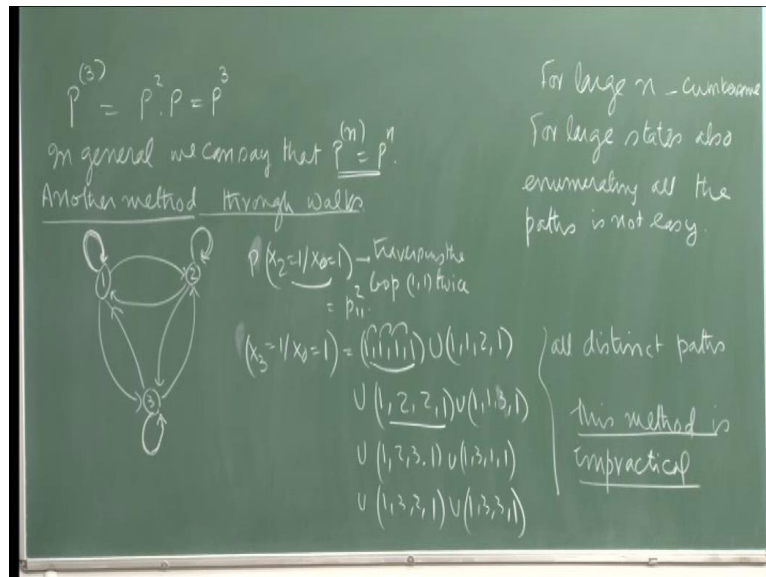 P^(3) = P^2.P = P^3
In general we can say that P^(n) = P^n.
Another method through walks
1
2
3
P(X2=1/X0=1) → traversing the
loop (1,1) twice
= p11^2.
(X3=1/X0=1) = (1,1,1,1) U (1,1,2,1)
U (1,2,2,1) U (1,1,3,1)
U (1,2,3,1) U (1,3,1,1)
U (1,3,2,1) U (1,3,3,1)
all distinct paths
This method is
impractical
For large n - cumbersome
For large states also
enumerating all the
paths is not easy.